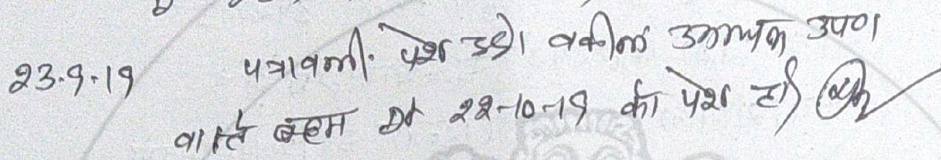 23.9.19 पत्रावली पेश हुई। वकील उभयपक्ष उप०।
वास्ते बहस दि 22-10-19 को पेश हो।